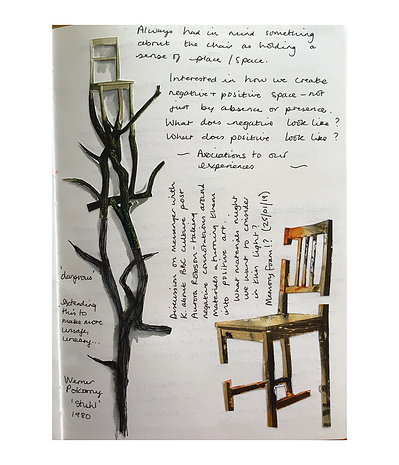 Always had in mind something
about the chair as holding a
sense of place/space.
Interested in how we create
negative + positive space - not
just by absence or presence.
What does negative look like?
What does positive look like?
~ Associations to our
experiences ~
Discussion on messenger with
K. BBC culture post
Aurora Robson - taking
negative connotations around
materials & turning them
into positive art.
What materials might
we want to consider
in this light?
Memory foam!? (25/01/19)
'dangerous'
extending
this to
make more
unsafe,
uneasy...
Werner
Pokorny
'Stuhl'
1980